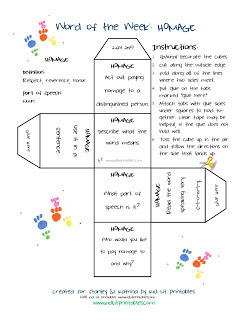 Word of the Week: HOMAGE
HOMAGE
Definition:
Respect, reverence, honor
part of speech
noun
glue here
HOMAGE
Act out paying
homage to a
distinguished person.
Instructions
cut along the outside edge
Fold along all of the lines
where two sides meet
Put glue on the tabs
marked "glue here"
Attach tabs with glue sides
under squares to hold to-
gether. Clear tape may be
helpful if the glue does not
hold well.
Toss the cube up in the air
and follow the directions on
the side that lands up.
glue here
HOMAGE
Use it in a
sentence
HOMAGE
describe what the
word means.
HOMAGE
Read the word
glue here
HOMAGE
What part of
speech is it?
HOMAGE
Who would you like
to pay homage to
and why?
created for Charley & Katrina by Kid Lit Printables
www.kidlitprintables.com